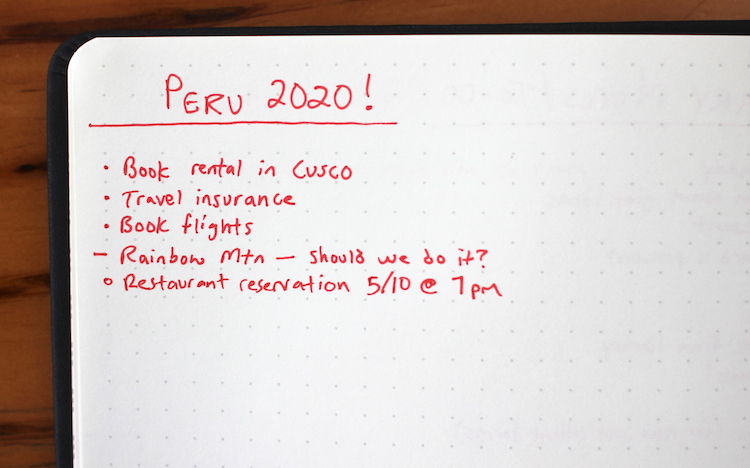 PERU 2020!
• Book rental in Cusco
• Travel insurance
• Book flights
– Rainbow Mtn – should we do it?
o Restaurant reservation 5/10 @ 7pm